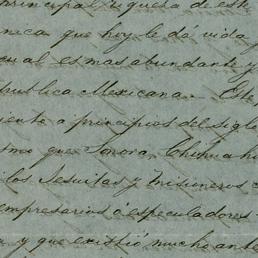 principal riqueza de este
meca que hoy le da vida
cual es mas abundante y
publica Mexicana. Este
siento a principios del siglo
smo que Sonora, Chihuahu
los Jesuitas y misioneros
empresarios ó especuladores
y que existió mucho ante